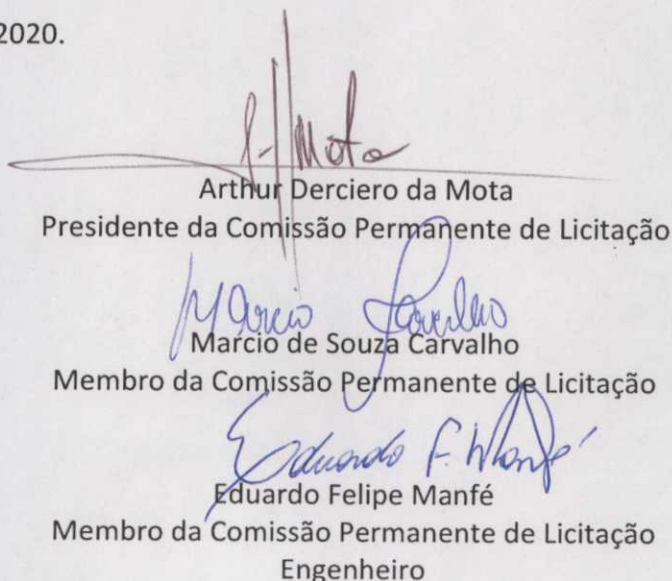 2020.
Mota
Arthur Derciero da Mota
Presidente da Comissão Permanente de Licitação
Marcio Carvalho
Marcio de Souza Carvalho
Membro da Comissão Permanente de Licitação
Eduardo F. Manfé
Eduardo Felipe Manfé
Membro da Comissão Permanente de Licitação
Engenheiro